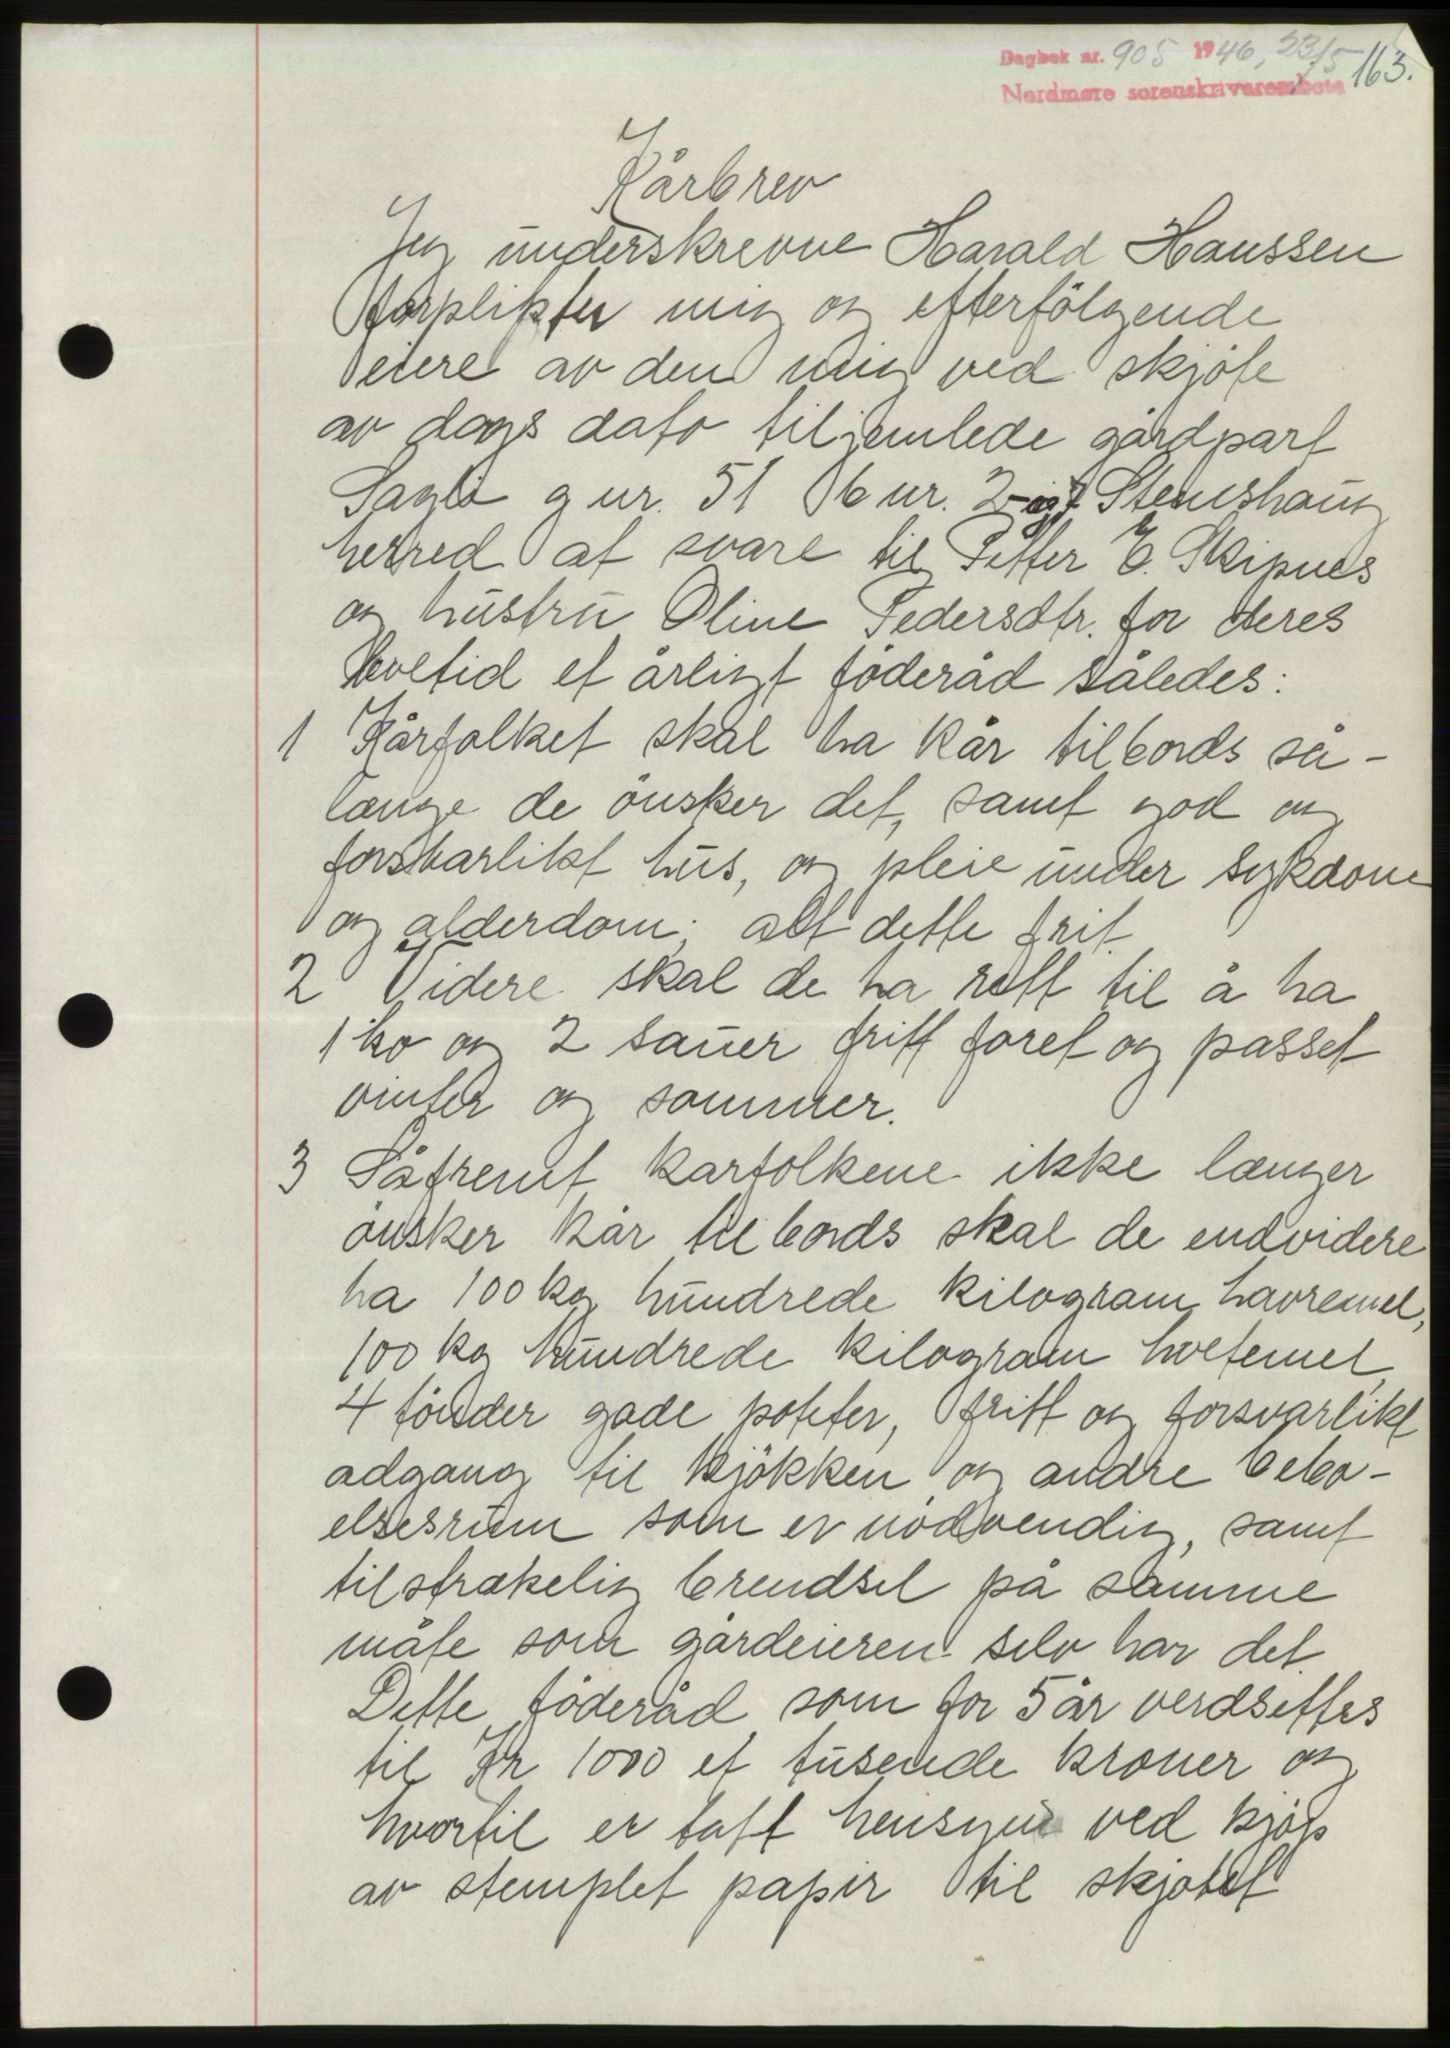 Dagbok nr. 905 1946, 23/5
163.
Nordmøre sorenskriverembete
Kårbrev
Jeg underskrevne Harald Hanssen
forplikter mig og efterfölgende
eiere av den mig ved skjöte
av dags dato tiljemlede gårdpart
Sagli g nr. 51 b nr. 2 Stenshaug
herred at svare til Petter E. Skipnes
og hustru Oline Pedersdtr. for deres
levetid et årligt föderåd således:
1 Kårfolket skal ha kår tilbords så-
længe de önsker det, samt god og
forsvarlikt hus, og pleie under sykdom
og alderdom; alt dette frit
2 Videre skal de ha rett til å ha
1 ko og 2 sauer fritt foret og passet
vinter og sommer.
3 Såfremt karfolkene ikke længer
önsker kår til bords skal de endvidere
ha 100 kg hundrede kilogram havremel,
100 kg hundrede kilogram hvetemel,
4 tönder gode poteter, fritt og forsvarlikt
adgang til kjökken og andre bebo-
elsesrum som er nödvendig, samt
tilstrækelig brendsel på samme
måte som gårdeieren selv har det.
Dette föderåd som for 5 år verdsettes
til Kr 1000 et tusende kroner og
hvortil er tatt hensyn ved kjöp
av stemplet papir til skjötet